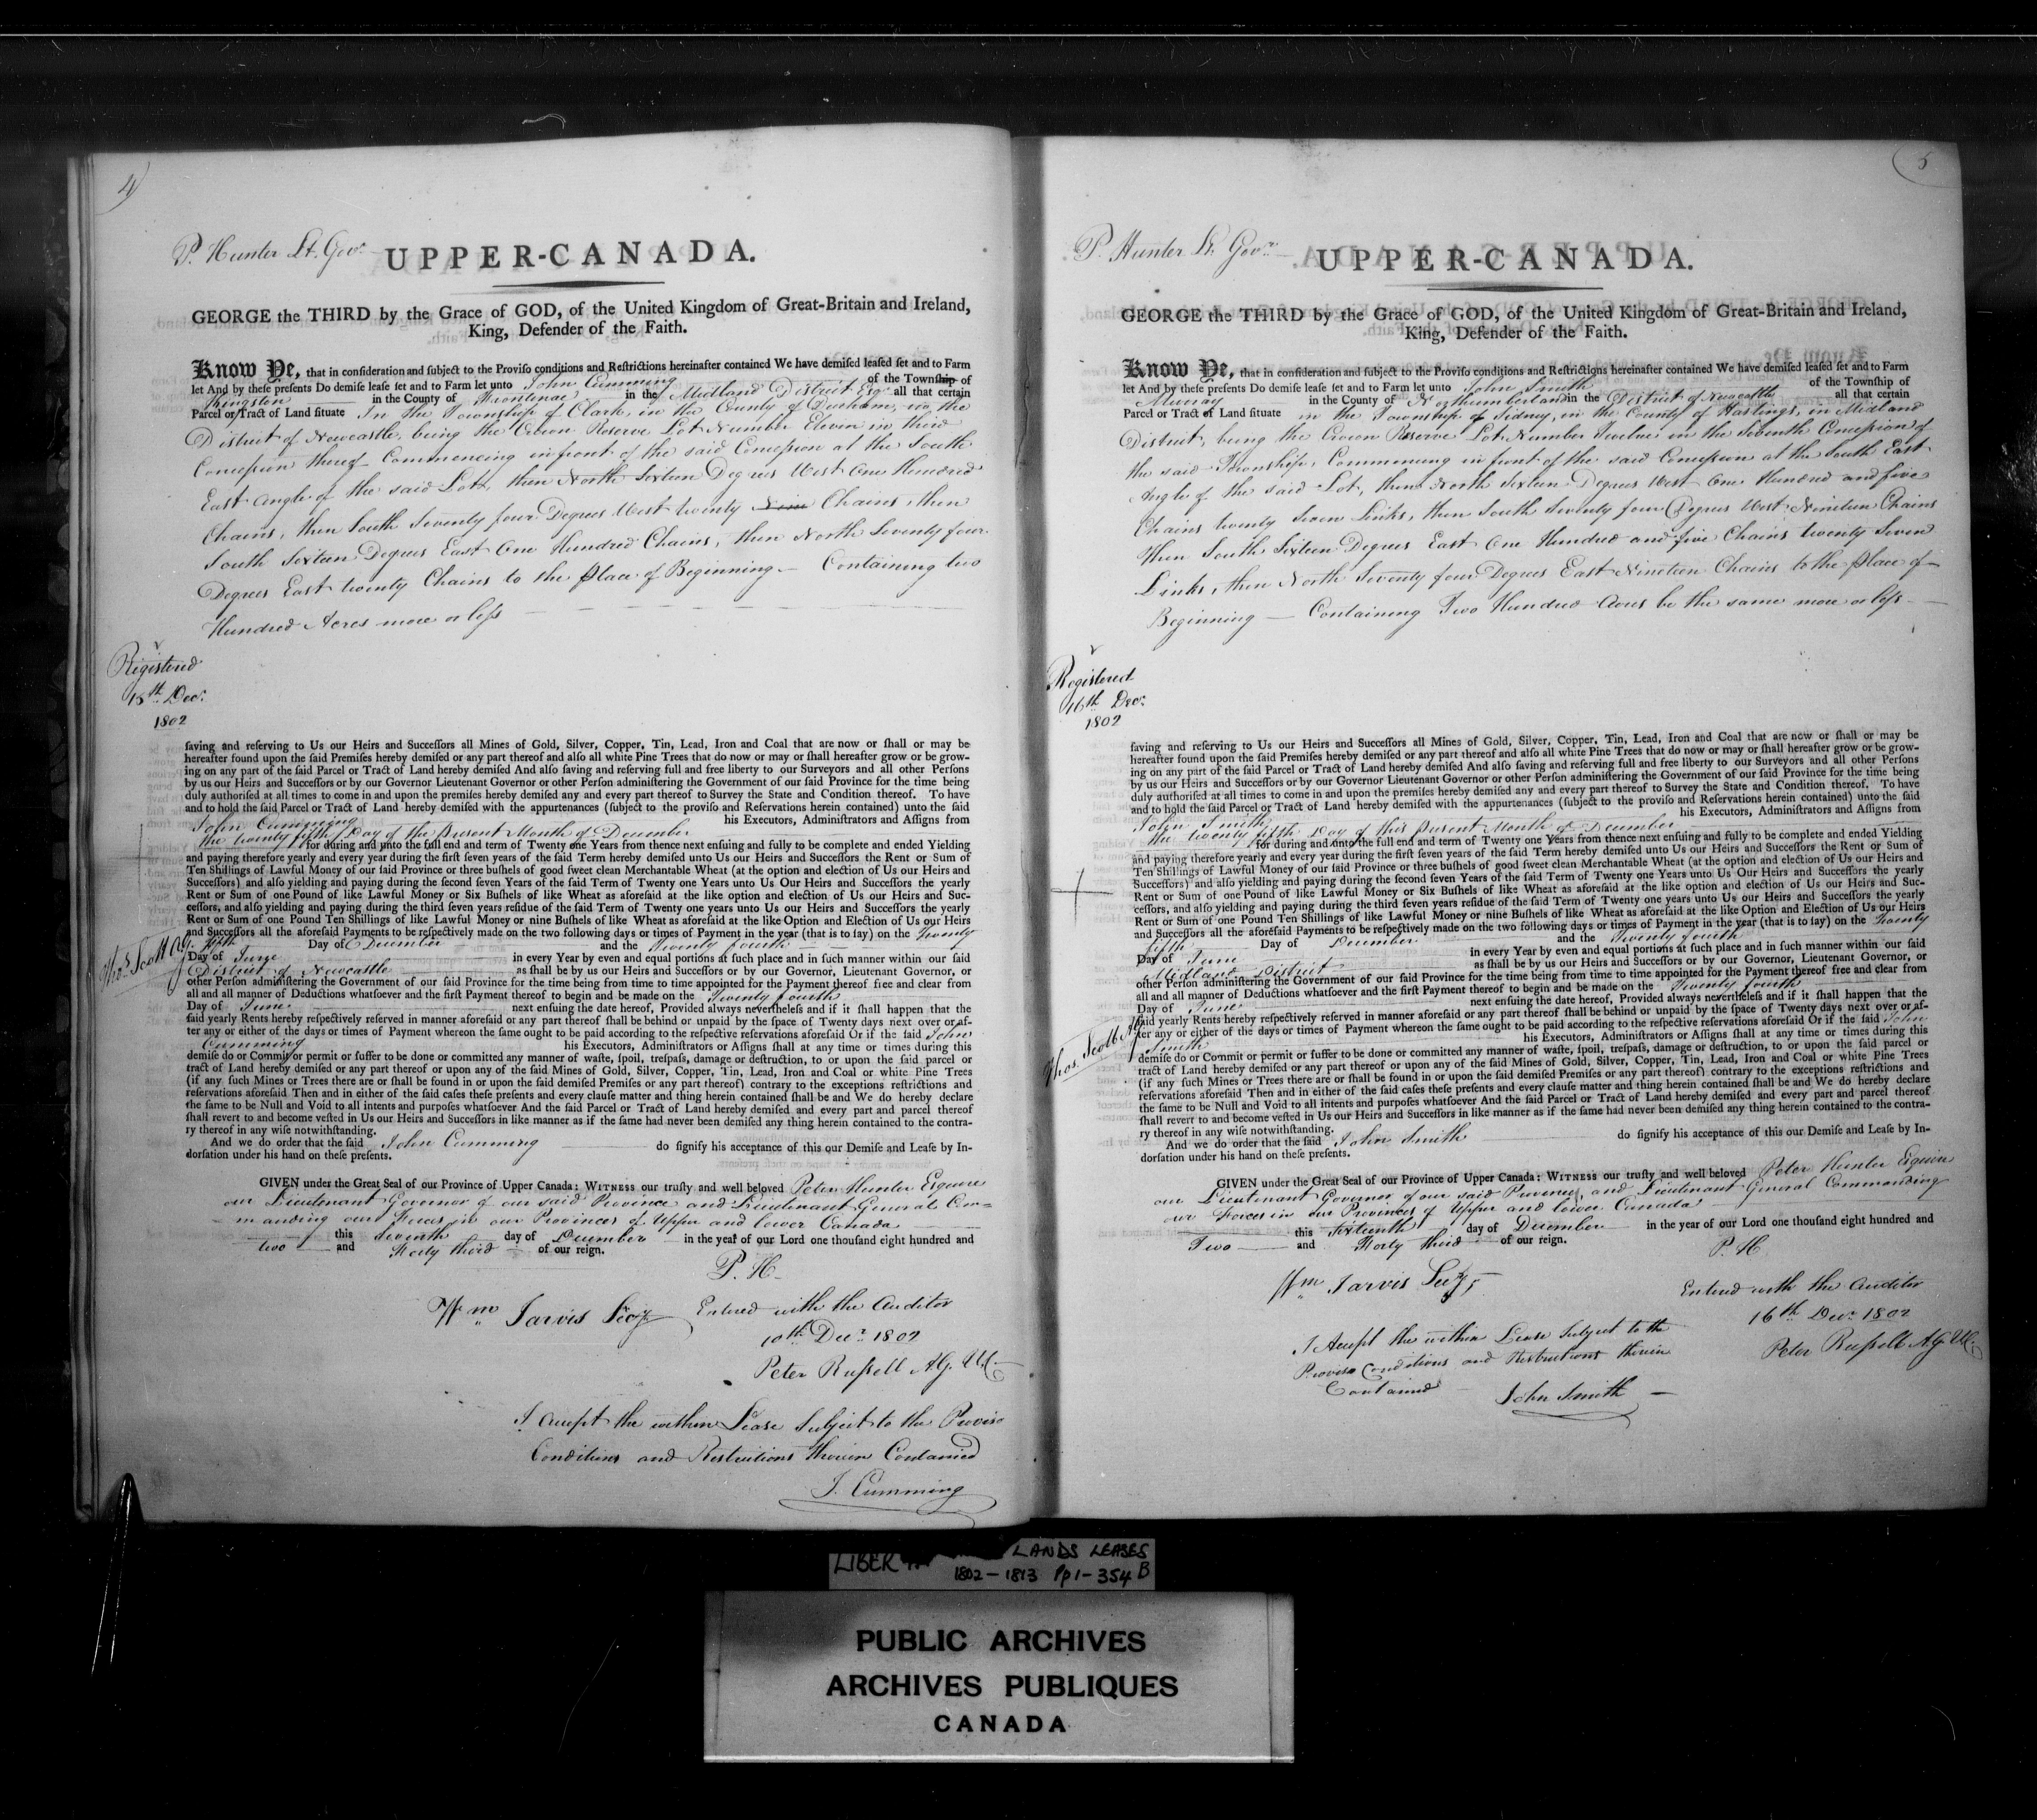 4
P. Hunter Lt. Govr.
UPPER-CANADA.
GEORGE the THIRD by the Grace of GOD, of the United Kingdom of Great-Britain and Ireland,
King, Defender of the Faith.
Know Ye, that in consideration and subject to the Proviso conditions and Restrictions hereinafter contained We have demised leased set and to Farm
let And by these presents Do demise lease set and to Farm let unto John Cumming of the Township of
Kingston in the County of Frontenac in the Midland District Esqr. all that certain
Parcel or Tract of Land situate In the Township of Clark, in the County of Durham, in the
District of Newcastle, being the Crown Reserve Lot Number Eleven in third
Concession thereof Commencing in front of the said Concession at the South
East angle of the said Lot, then North Sixteen Degrees West One Hundred
Chains, then South Seventy four Degrees West twenty Nine Chains, then
South Sixteen Degrees East One Hundred Chains, then North Seventy four
Degrees East twenty Chains to the place of Beginning — Containing two
Hundred Acres more or less
Registered
18th Decr.
1802
saving and reserving to Us our Heirs and Successors all Mines of Gold, Silver, Copper, Tin, Lead, Iron and Coal that are now or shall or may be
hereafter found upon the said Premises hereby demised or any part thereof and also all white Pine Trees that do now or may or shall hereafter grow or be grow-
ing on any part of the said Parcel or Tract of Land hereby demised And also saving and reserving full and free liberty to our Surveyors and all other Persons
by us our Heirs and Successors or by our Governor Lieutenant Governor or other Person administering the Government of our said Province for the time being
duly authorised at all times to come in and upon the premises hereby demised any and every part thereof to Survey the State and Condition thereof. To have
and to hold the said Parcel or Tract of Land hereby demised with the appurtenances (subject to the proviso and Reservations herein contained) unto the said
John Cumming his Executors, Administrators and Assigns from
the twenty fifth Day of the present Month of December
for during and unto the full end and term of Twenty one Years from thence next ensuing and fully to be complete and ended Yielding
and paying therefore yearly and every year during the first seven years of the said Term hereby demised unto Us our Heirs and Successors the Rent or Sum of
Ten Shillings of Lawful Money of our said Province or three bushels of good sweet clean Merchantable Wheat (at the option and election of Us our Heirs and
Successors) and also yielding and paying during the second seven Years of the said Term of Twenty one Years unto Us Our Heirs and Successors the yearly
Rent or Sum of one Pound of like Lawful Money or Six Bushels of like Wheat as aforesaid at the like option and election of Us our Heirs and Suc-
cessors, and also yielding and paying during the third seven years residue of the said Term of Twenty one years unto Us our Heirs and Successors the yearly
Rent or Sum of one Pound Ten Shillings of like Lawful Money or nine Bushels of like Wheat as aforesaid at the like Option and Election of Us our Heirs
and Successors all the aforesaid Payments to be respectively made on the two following days or times of Payment in the year (that is to say) on the Twenty
fifth Day of December and the Twenty fourth
Thos. Scott Ag.
Day of June in every Year by even and equal portions at such place and in such manner within our said
District of Newcastle as shall be by us our Heirs and Successors or by our Governor, Lieutenant Governor, or
other Person administering the Government of our said Province for the time being from time to time appointed for the Payment thereof free and clear from
all and all manner of Deductions whatsoever and the first Payment thereof to begin and be made on the Twenty fourth
Day of June next ensuing the date hereof, Provided always nevertheless and if it shall happen that the
said yearly Rents hereby respectively reserved in manner aforesaid or any part thereof shall be behind or unpaid by the space of Twenty days next over or af-
ter any or either of the days or times of Payment whereon the same ought to be paid according to the respective reservations aforesaid Or if the said John
Cumming his Executors, Administrators or Assigns shall at any time or times during this
demise do or Commit or permit or suffer to be done or committed any manner of waste, spoil, trespass, damage or destruction, to or upon the said parcel or
tract of Land hereby demised or any part thereof or upon any of the said Mines of Gold, Silver, Copper, Tin, Lead, Iron and Coal or white Pine Trees
(if any such Mines or Trees there are or shall be found in or upon the said demised Premises or any part thereof) contrary to the exceptions restrictions and
reservations aforesaid Then and in either of the said cases these presents and every clause matter and thing herein contained shall be and We do hereby declare
the same to be Null and Void to all intents and purposes whatsoever And the said Parcel or Tract of Land hereby demised and every part and parcel thereof
shall revert to and become vested in Us our Heirs and Successors in like manner as if the same had never been demised any thing herein contained to the contra-
ry thereof in any wise notwithstanding.
And we do order that the said John Cumming do signify his acceptance of this our Demise and Lease by In-
dorsation under his hand on these presents.
GIVEN under the Great Seal of our Province of Upper Canada: WITNESS our trusty and well beloved Peter Hunter Esquire
our Lieutenant Governor of our said Province and Lieutenant General Com=
manding our Forces in our Provinces of Upper and lower Canada
this Seventh day of December in the year of our Lord one thousand eight hundred and
two and Forty third of our reign.
P. H.
Wm. Jarvis Secy
Entered with the Auditor
10th Decr. 1802
Peter Russell A.G. U.C.
I accept the within Lease Subject to the Proviso
Conditions and Restrictions therein Contained
J. Cumming
5
P. Hunter Lt. Govr.
UPPER-CANADA.
GEORGE the THIRD by the Grace of GOD, of the United Kingdom of Great-Britain and Ireland,
King, Defender of the Faith.
Know Ye, that in consideration and subject to the Proviso conditions and Restrictions hereinafter contained We have demised leased set and to Farm
let And by these presents Do demise lease set and to Farm let unto John Smith of the Township of
Murray in the County of Northumberland in the District of Newcastle all that certain
Parcel or Tract of Land situate in the Township of Sidney, in the County of Hastings, in Midland
District, being the Crown Reserve Lot Number Twelve in the Seventh Concession of
the said Township, Commencing in front of the said Concession at the South East
Angle of the said Lot, then North Sixteen Degrees West One Hundred and five
Chains twenty Seven Links, then South Seventy four Degrees West Nineteen Chains
Then South Sixteen Degrees East One Hundred and five Chains twenty Seven
Links, then North Seventy four Degrees East Nineteen Chains to the place of
Beginning — Containing Two Hundred Acres be the same more or less
Registered
16th Decr.
1802
saving and reserving to Us our Heirs and Successors all Mines of Gold, Silver, Copper, Tin, Lead, Iron and Coal that are now or shall or may be
hereafter found upon the said Premises hereby demised or any part thereof and also all white Pine Trees that do now or may or shall hereafter grow or be grow-
ing on any part of the said Parcel or Tract of Land hereby demised And also saving and reserving full and free liberty to our Surveyors and all other Persons
by us our Heirs and Successors or by our Governor Lieutenant Governor or other Person administering the Government of our said Province for the time being
duly authorised at all times to come in and upon the premises hereby demised any and every part thereof to Survey the State and Condition thereof. To have
and to hold the said Parcel or Tract of Land hereby demised with the appurtenances (subject to the proviso and Reservations herein contained) unto the said
John Smith his Executors, Administrators and Assigns from
the twenty fifth Day of this present Month of December
for during and unto the full end and term of Twenty one Years from thence next ensuing and fully to be complete and ended Yielding
and paying therefore yearly and every year during the first seven years of the said Term hereby demised unto Us our Heirs and Successors the Rent or Sum of
Ten Shillings of Lawful Money of our said Province or three bushels of good sweet clean Merchantable Wheat (at the option and election of Us our Heirs and
Successors) and also yielding and paying during the second seven Years of the said Term of Twenty one Years unto Us Our Heirs and Successors the yearly
Rent or Sum of one Pound of like Lawful Money or Six Bushels of like Wheat as aforesaid at the like option and election of Us our Heirs and Suc-
cessors, and also yielding and paying during the third seven years residue of the said Term of Twenty one years unto Us our Heirs and Successors the yearly
Rent or Sum of one Pound Ten Shillings of like Lawful Money or nine Bushels of like Wheat as aforesaid at the like Option and Election of Us our Heirs
and Successors all the aforesaid Payments to be respectively made on the two following days or times of Payment in the year (that is to say) on the Twenty
fifth Day of December and the Twenty fourth
Day of June in every Year by even and equal portions at such place and in such manner within our said
Midland District as shall be by us our Heirs and Successors or by our Governor, Lieutenant Governor, or
other Person administering the Government of our said Province for the time being from time to time appointed for the Payment thereof free and clear from
all and all manner of Deductions whatsoever and the first Payment thereof to begin and be made on the Twenty fourth
Day of June next ensuing the date hereof, Provided always nevertheless and if it shall happen that the
said yearly Rents hereby respectively reserved in manner aforesaid or any part thereof shall be behind or unpaid by the space of Twenty days next over or af-
ter any or either of the days or times of Payment whereon the same ought to be paid according to the respective reservations aforesaid Or if the said John
Thos. Scott Ag.
Smith his Executors, Administrators or Assigns shall at any time or times during this
demise do or Commit or permit or suffer to be done or committed any manner of waste, spoil, trespass, damage or destruction, to or upon the said parcel or
tract of Land hereby demised or any part thereof or upon any of the said Mines of Gold, Silver, Copper, Tin, Lead, Iron and Coal or white Pine Trees
(if any such Mines or Trees there are or shall be found in or upon the said demised Premises or any part thereof) contrary to the exceptions restrictions and
reservations aforesaid Then and in either of the said cases these presents and every clause matter and thing herein contained shall be and We do hereby declare
the same to be Null and Void to all intents and purposes whatsoever And the said Parcel or Tract of Land hereby demised and every part and parcel thereof
shall revert to and become vested in Us our Heirs and Successors in like manner as if the same had never been demised any thing herein contained to the contra-
ry thereof in any wise notwithstanding.
And we do order that the said John Smith do signify his acceptance of this our Demise and Lease by In-
dorsation under his hand on these presents.
GIVEN under the Great Seal of our Province of Upper Canada: WITNESS our trusty and well beloved Peter Hunter Esquire
our Lieutenant Governor of our said Province, and Lieutenant General Commanding
our Forces in our Provinces of Upper and lower Canada
this Sixteenth day of December in the year of our Lord one thousand eight hundred and
Two and Forty third of our reign.
P. H.
Wm. Jarvis Secy
Entered with the Auditor
16th Decr. 1802
Peter Russell A.G. U.C.
I Accept the within Lease Subject to the
Proviso Conditions and Restrictions therein
Contained
John Smith
LIBER LANDS LEASES
1802-1813 Pp 1-354 B
PUBLIC ARCHIVES
ARCHIVES PUBLIQUES
CANADA